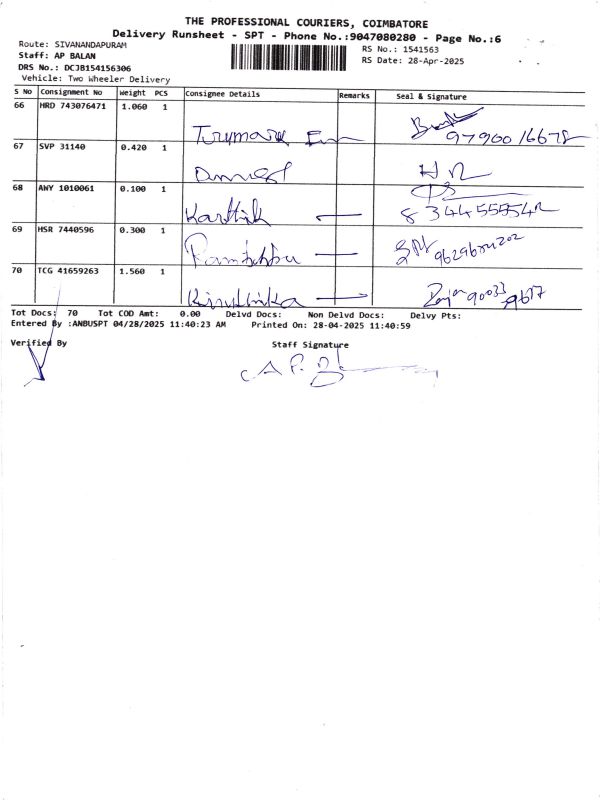 THE PROFESSIONAL COURIERS, COIMBATORE
Delivery Runsheet - SPT - Phone No.:9047080280 - Page No.:6
Route: SIVANANDAPURAM
RS No.: 1541563
Staff: AP BALAN
RS Date: 28-Apr-2025
DRS No.: DCJB154156306
Vehicle: Two Wheeler Delivery
S No Consignment No Weight PCS Consignee Details Remarks Seal & Signature
66 HRD 743076471 1.060 1
67 SVP 31140 0.420 1
68 AWY 1010061 0.100 1
Karthik
69 HSR 7440596 0.300 1
70 TCG 41659263 1.560 1
Kiruthika
Tot Docs: 70 Tot COD Amt: 0.00 Delvd Docs: Non Delvd Docs: Delvy Pts:
Entered By :ANBUSPT 04/28/2025 11:40:23 AM Printed On: 28-04-2025 11:40:59
Verified By Staff Signature